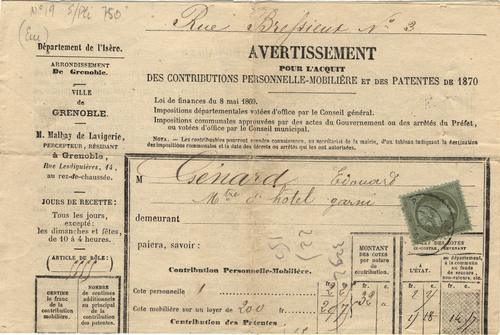 Rue Bressieux N° 3
Département de l'Isère.
ARRONDISSEMENT
De Grenoble.
VILLE
de
GRENOBLE.
M. Malhay de Lavigerie,
PERCEPTEUR, RÉSIDANT
à Grenoble,
Rue Lesdiguières, 14,
au rez-de-chaussée.
JOURS DE RECETTE:
Tous les jours,
excepté:
les dimanches et fêtes,
de 10 à 4 heures.
ARTICLE DU RÔLE:
CENTIME
le franc
de la contribution
mobilière.
NOMBRE
de centimes
additionnels
au principal
de la contribution
des patentes.
AVERTISSEMENT
POUR L'ACQUIT
DES CONTRIBUTIONS PERSONNELLE-MOBILIÈRE ET DES PATENTES DE 1870
Loi de finances du 8 mai 1869.
Impositions départementales votées d'office par le Conseil général.
Impositions communales approuvées par des actes du Gouvernement ou des arrêtés du Préfet,
ou votées d'office par le Conseil municipal.
NOTA. — Les contribuables pourront prendre connaissance, au secrétariat de la mairie, d'un tableau indiquant la destination
des impositions communales et la date des décrets ou arrêtés qui les ont autorisées.
M Génard Edouard
Mtre d'hotel garni
demeurant
paiera, savoir:
MONTANT
des cotes
par nature
de
contribution.
Contribution Personnelle-Mobilière.
Cote personnelle 1
Cote mobilière sur un loyer de 200 fr.
Contribution des Patentes
L'ÉTAT.
au département,
à la commune
au fonds
de secours,
non-valeurs,
etc.